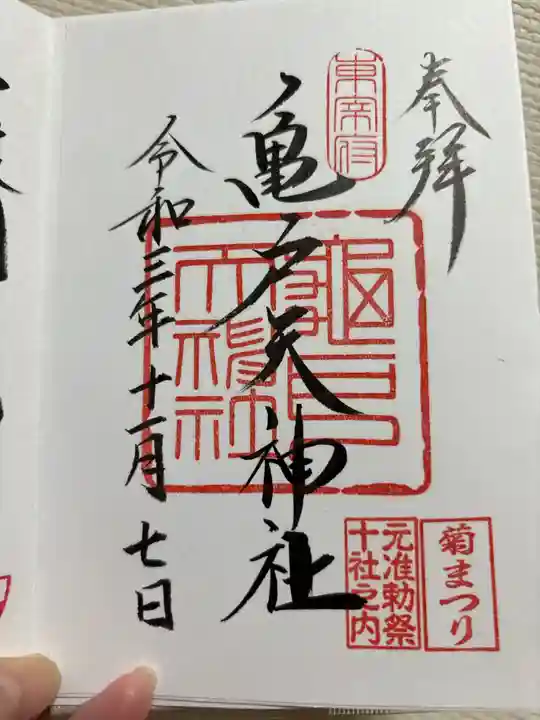 奉拝
東宰府
亀戸天神社
亀戸天神社
令和三年十一月七日
菊まつり
元准勅祭
十社之内